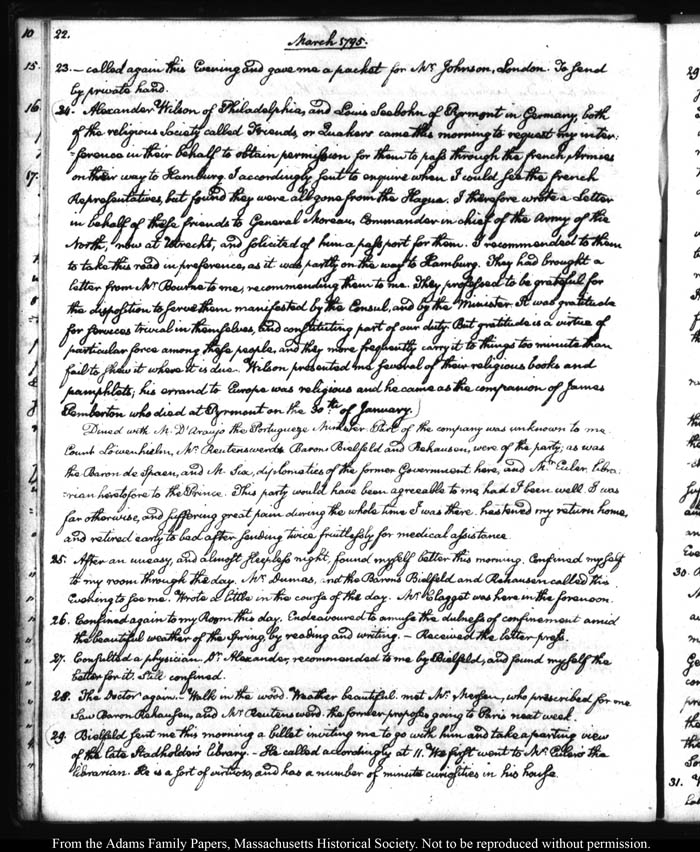 22.
March 1795.
23. – called again this Evening and gave me a packet for Mr. Johnson, London. To send
by private hand.
24. Alexander Wilson of Philadelphia, and Louis Seebohn of Pyrmont in Germany, both
of the religious Society called Friends, or Quakers came this morning to request my inter:
=ference in their behalf to obtain permission for them to pass through the french Armies
on their way to Hamburg. I accordingly sent to enquire when I could see the french
Representatives, but found they were all gone from the Hague. I therefore wrote a Letter
in behalf of these friends to General Moreau, Commander in chief of the Army of the
North, now at Utrecht, and solicited of him a passport for them. I recommended to them
to take this road in preference, as it was partly on the way to Hamburg. They had brought a
letter from Mr Bourne to me, recommending them to me. They professed to be grateful for
the disposition to serve them manifested by the Consul, and by the Minister. It was gratitude
for services trivial in themselves, and constituting part of our duty. But gratitude is a virtue of
particular force among these people, and they more frequently carry it to things too minute than
fail to shew it where it is due. Wilson presented me several of their religious books and
pamphlets; his errand to Europe was religious and he came as the companion of James
Pemberton who died at Pyrmont on the 30th of January.)
Dined with M. D'Araujo the Portugueze Minister. Part of the company was unknown to me.
Count Löwenhielm, Mr. Reutenswerd, Barons Bielfeld and Rehausen, were of the party; as was
the Baron de Spaen, and M. Six, diplomatics of the former Government here, and Mr. Euler, libra:
:rian heretofore to the Prince. This party would have been agreeable to me had I been well. I was
far otherwise, and suffering great pain during the whole time I was there. hastened my return home,
and retired early to bed after sending twice fruitlessly for medical assistance.
25. After an uneasy, and almost sleepless night, found myself better this morning. Confined myself
to my room through the day. Mr. Dumas, and the Barons Bielfeld and Rehausen called this
Evening to see me. Wrote a little in the course of the day. Mr. Clagget was here in the forenoon.
26. Confined again to my Room this day. Endeavoured to amuse the dulness of confinement amid
the beautiful weather of the Spring, by reading and writing. – Received the letter press.
27. Consulted a physician Dr. Alexander, recommended to me by Bielfeld, and found myself the
better for it. Still confined.
28. The Doctor again. Walk in the wood. Weather beautiful. met Mr. who prescribed for me.
Saw Baron Rehausen, and Mr. Reutensword. the former proposes going to Paris next week.
29. Bielfeld sent me this morning a billet inviting me to go with him and take a parting view
of the late Stadholder's library. – He called accordingly at 11. We first went to Mr. Euler's the
librarian. He is a sort of virtuoso, and has a number of minute curiosities in his house.
10
15.
16
17.
29
30.
31.
From the Adams Family Papers, Massachusetts Historical Society. Not to be reproduced without permission.